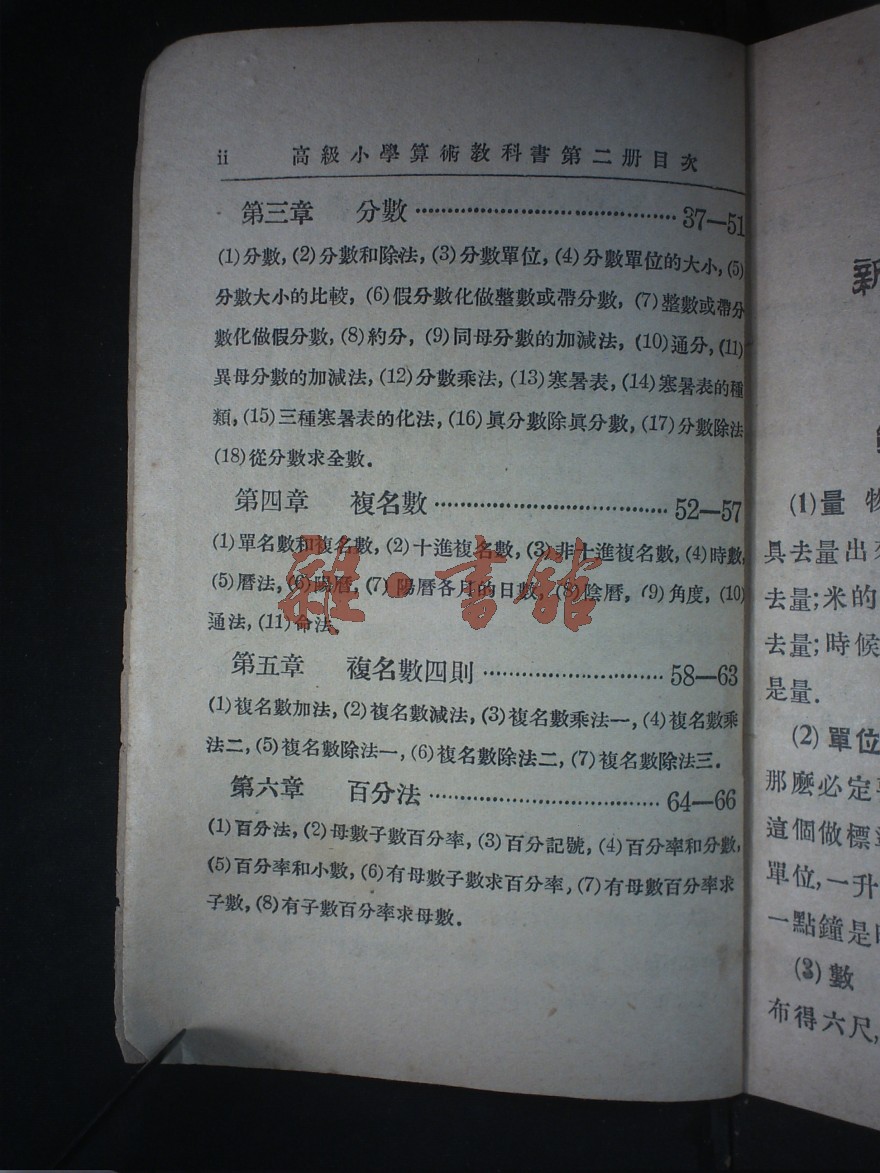 ii 高級小學算術教科書第二册目次
第三章 分數 …………………………………… 37—51
(1)分數, (2)分數和除法, (3)分數單位, (4)分數單位的大小, (5)
分數大小的比較, (6)假分數化做整數或帶分數, (7)整數或帶分
數化做假分數, (8)約分, (9)同母分數的加減法, (10)通分, (11)
異母分數的加減法, (12)分數乘法, (13)寒暑表, (14)寒暑表的種
類, (15)三種寒暑表的化法, (16)眞分數除眞分數, (17)分數除法
(18)從分數求全數.
第四章 複名數 ………………………………… 52—57
(1)單名數和複名數, (2)十進複名數, (3)非十進複名數, (4)時數,
(5)曆法, (6)陽曆, (7)陽曆各月的日數, (8)陰曆, (9)角度, (10)
通法, (11)命法.
第五章 複名數四則 ………………………… 58—63
(1)複名數加法, (2)複名數減法, (3)複名數乘法一, (4)複名數乘
法二, (5)複名數除法一, (6)複名數除法二, (7)複名數除法三.
第六章 百分法 ………………………………… 64—66
(1)百分法, (2)母數子數百分率, (3)百分記號, (4)百分率和分數,
(5)百分率和小數, (6)有母數子數求百分率, (7)有母數百分率求
子數, (8)有子數百分率求母數.
雜·書館
新
(1)量 物
具去量出來
去量;米的
去量;時候
是量.
(2)單位
那麽必定
這個做標
單位,一升
一點鐘是
(3)數
布得六尺,